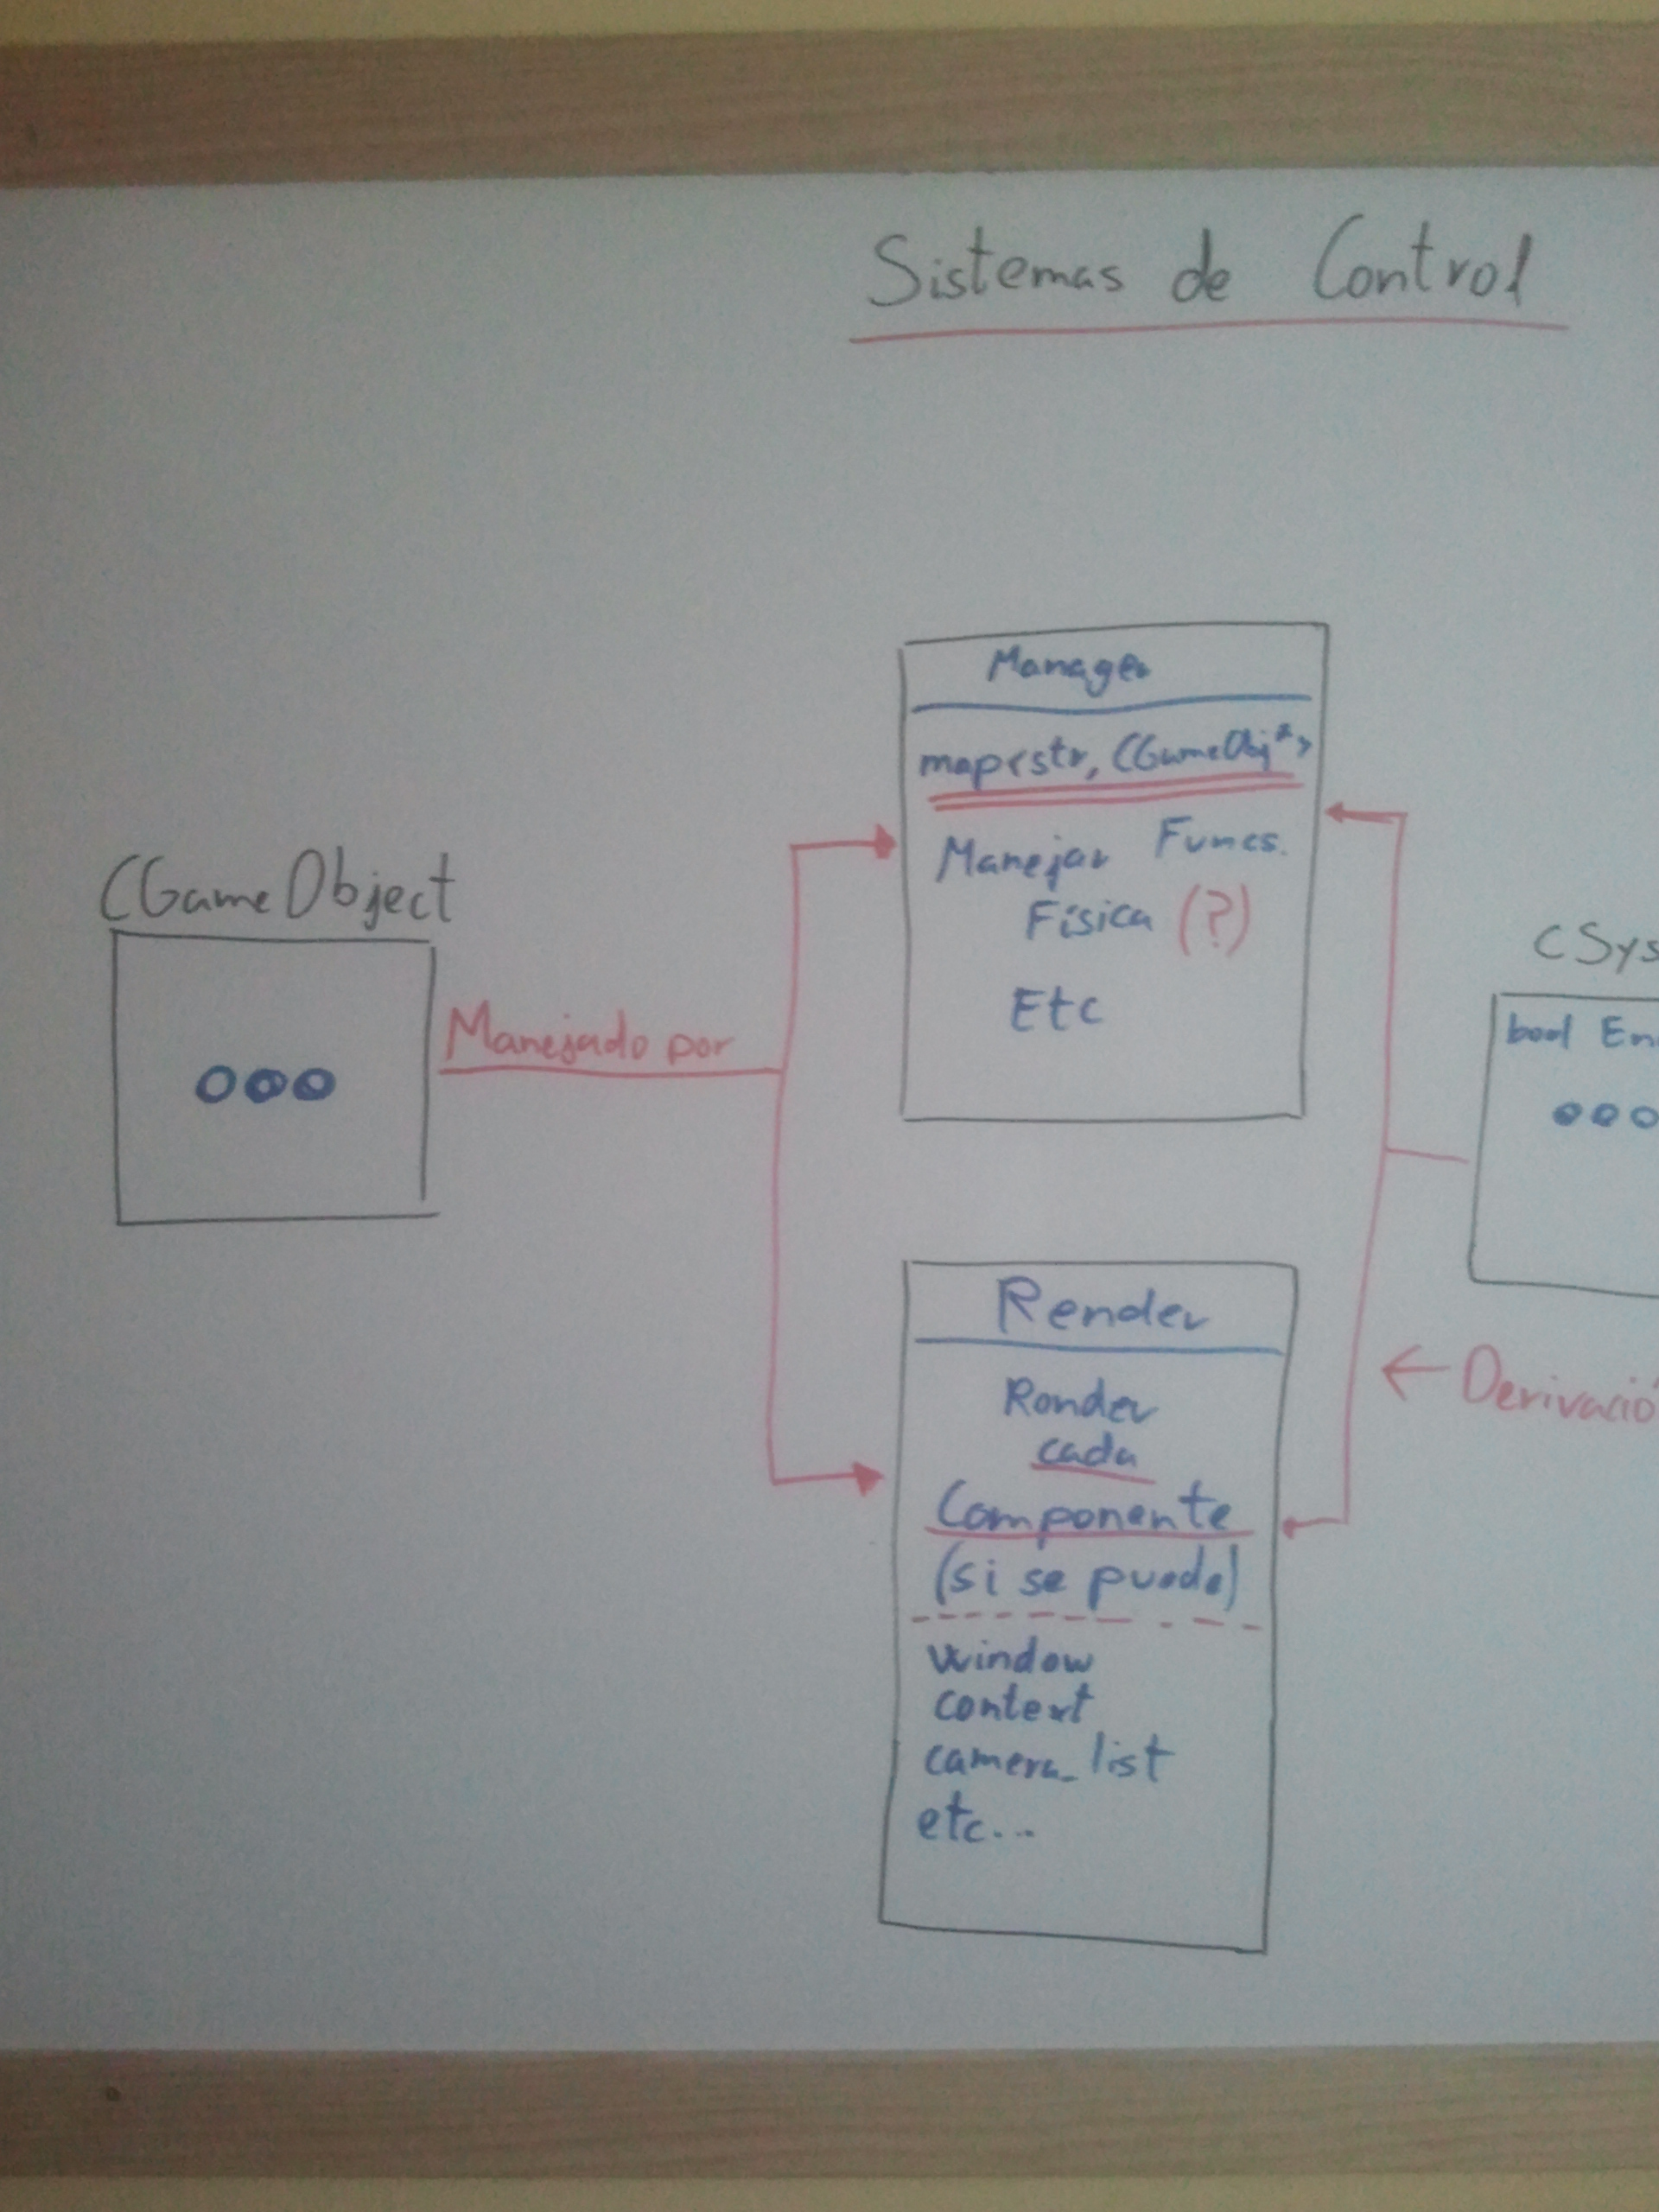 Sistemas de Control
CGameObject
Manejado por
Manager
map<str, CGameObj*>
Manejar Funcs.
Física (?)
Etc
Render
Render
cada
Componente
(si se puede)
window
context
camera_list
etc...
CSys
bool En
← Derivació